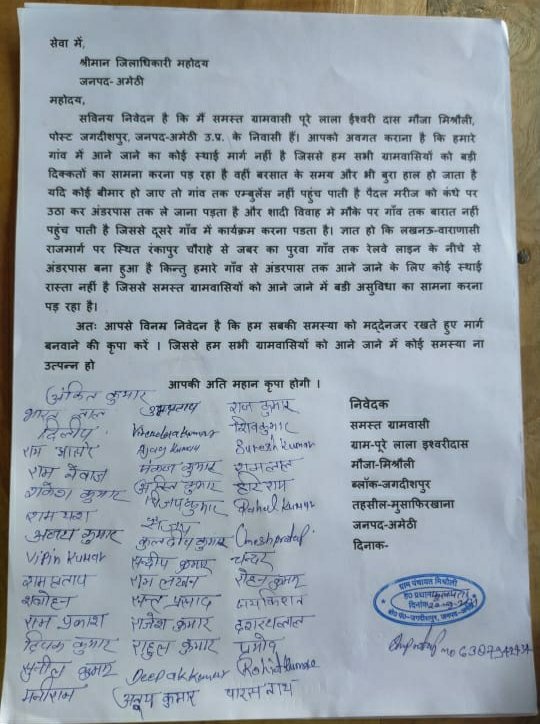 सेवा में,
श्रीमान जिलाधिकारी महोदय
जनपद- अमेठी
महोदय,
सविनय निवेदन है कि मैं समस्त ग्रामवासी पूरे लाला ईश्वरी दास मौजा मिश्रौली,
पोस्ट जगदीशपुर, जनपद-अमेठी उ.प्र. के निवासी हैं। आपको अवगत कराना है कि हमारे
गांव में आने जाने का कोई स्थाई मार्ग नहीं है जिससे हम सभी ग्रामवासियों को बड़ी
दिक्कतों का सामना करना पड़ रहा है वहीं बरसात के समय और भी बुरा हाल हो जाता है
यदि कोई बीमार हो जाए तो गांव तक एम्बुलेंस नहीं पहुंच पाती है पैदल मरीज को कंधे पर
उठा कर अंडरपास तक ले जाना पड़ता है और शादी विवाह मे मौके पर गाँव तक बारात नहीं
पहुंच पाती है जिससे दूसरे गाँव में कार्यक्रम करना पडता है। ज्ञात हो कि लखनऊ-वाराणासी
राजमार्ग पर स्थित रंकापुर चौराहे से जबर का पुरवा गाँव तक रेलवे लाइन के नीचे से
अंडरपास बना हुआ है किन्तु हमारे गाँव से अंडरपास तक आने जाने के लिए कोई स्थाई
रास्ता नहीं है जिससे समस्त ग्रामवासियों को आने जाने में बडी असुविधा का सामना करना
पड़ रहा है।
अतः आपसे विनम्र निवेदन है कि हम सबकी समस्या को मद्देनजर रखते हुए मार्ग
बनवाने की कृपा करें । जिससे हम सभी ग्रामवासियों को आने जाने में कोई समस्या ना
उत्पन्न हो
आपकी अति महान कृपा होगी ।
निवेदक
समस्त ग्रामवासी
ग्राम-पूरे लाला इश्वरीदास
मौजा-मिश्रौली
ब्लॉक-जगदीशपुर
तहसील-मुसाफिरखाना
जनपद-अमेठी
दिनांक-
अंकित कुमार
भारत लाल राज कुमार
दिलीप Virendra kumar शिवकुमार
राम आसरे Ajay kumar Suresh kumar
राम नेवाज पंकज कुमार रामलाल
राकेश कुमार अनिल कुमार
विजय कुमार Rahul kumar
अजय कुमार कुलदीप कुमार
Vipin kumar सन्दीप कुमार चन्दर
राम प्रताप राम लखन रोहन कुमार
सन्त प्रसाद जय किशन
राम प्रकाश राजेश कुमार दशरथलाल
दीपक कुमार राहुल कुमार प्रमोद
सुनील कुमार Deepak kumar Rohit kumar
मनीराम अजय कुमार पारस नाथ
ग्राम पंचायत मिश्रौली
दिनांक